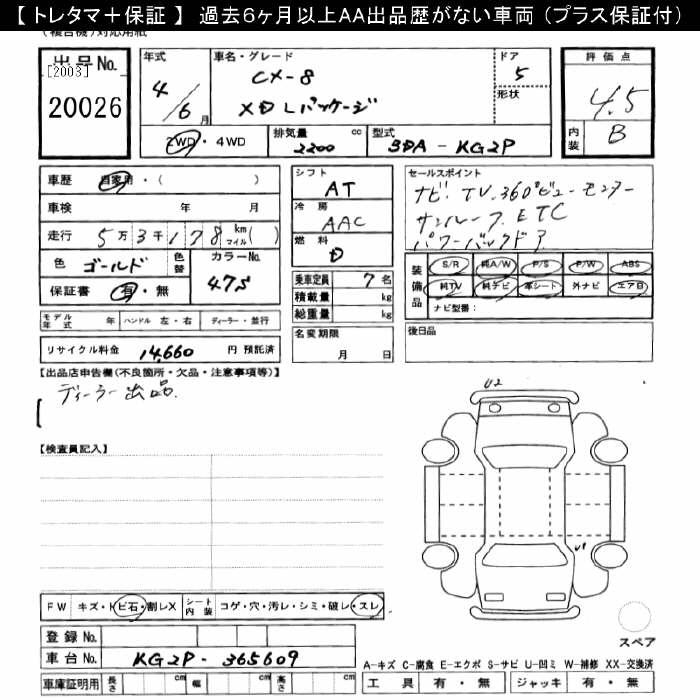 【トレタマ＋保証】 過去6ヶ月以上AA出品歴がない車両（プラス保証付）
（複合機）対応用紙
出品No.
[2003]
20026
年式
4/6月
車名・グレード
CX-8
XDLパッケージ
ドア
5
形状
評価点
4.5
内装
B
2WD・4WD
排気量 cc
2200
型式
3DA-KG2P
車歴 自家用・（ ）
車検 年 月
走行 5万3千178 km マイル( )
色 ゴールド 色替
カラーNo.
475
保証書 有・無
シフト
AT
冷房
AAC
燃料
D
乗車定員 7名
積載量 kg
総重量 kg
名変期限
月 日
セールスポイント
ナビ.TV.360°ビューモニター
サンルーフ.ETC
パワーバックドア
装備品
S/R 純A/W P/S P/W ABS
純TV 純ナビ 革シート 外ナビ エアB
ナビ型番：
モデル年式 年 ハンドル 左・右 ディーラー・並行
後日品
リサイクル料金 14,660 円 預託済
【出品店申告欄(不良箇所・欠品・注意事項等)】
ディーラー出品.
【検査員記入】
U2
FW キズ・トビ石・割レX
シート内装 コゲ・穴・汚レ・シミ・破レ・スレ
登録No.
車台No. KG2P-365609
車庫証明用 長さ cm 幅 cm 高さ cm
スペア
A-キズ C-腐食 E-エクボ S-サビ U-凹ミ W-補修 XX-交換済
工具 有・無 ジャッキ 有・無